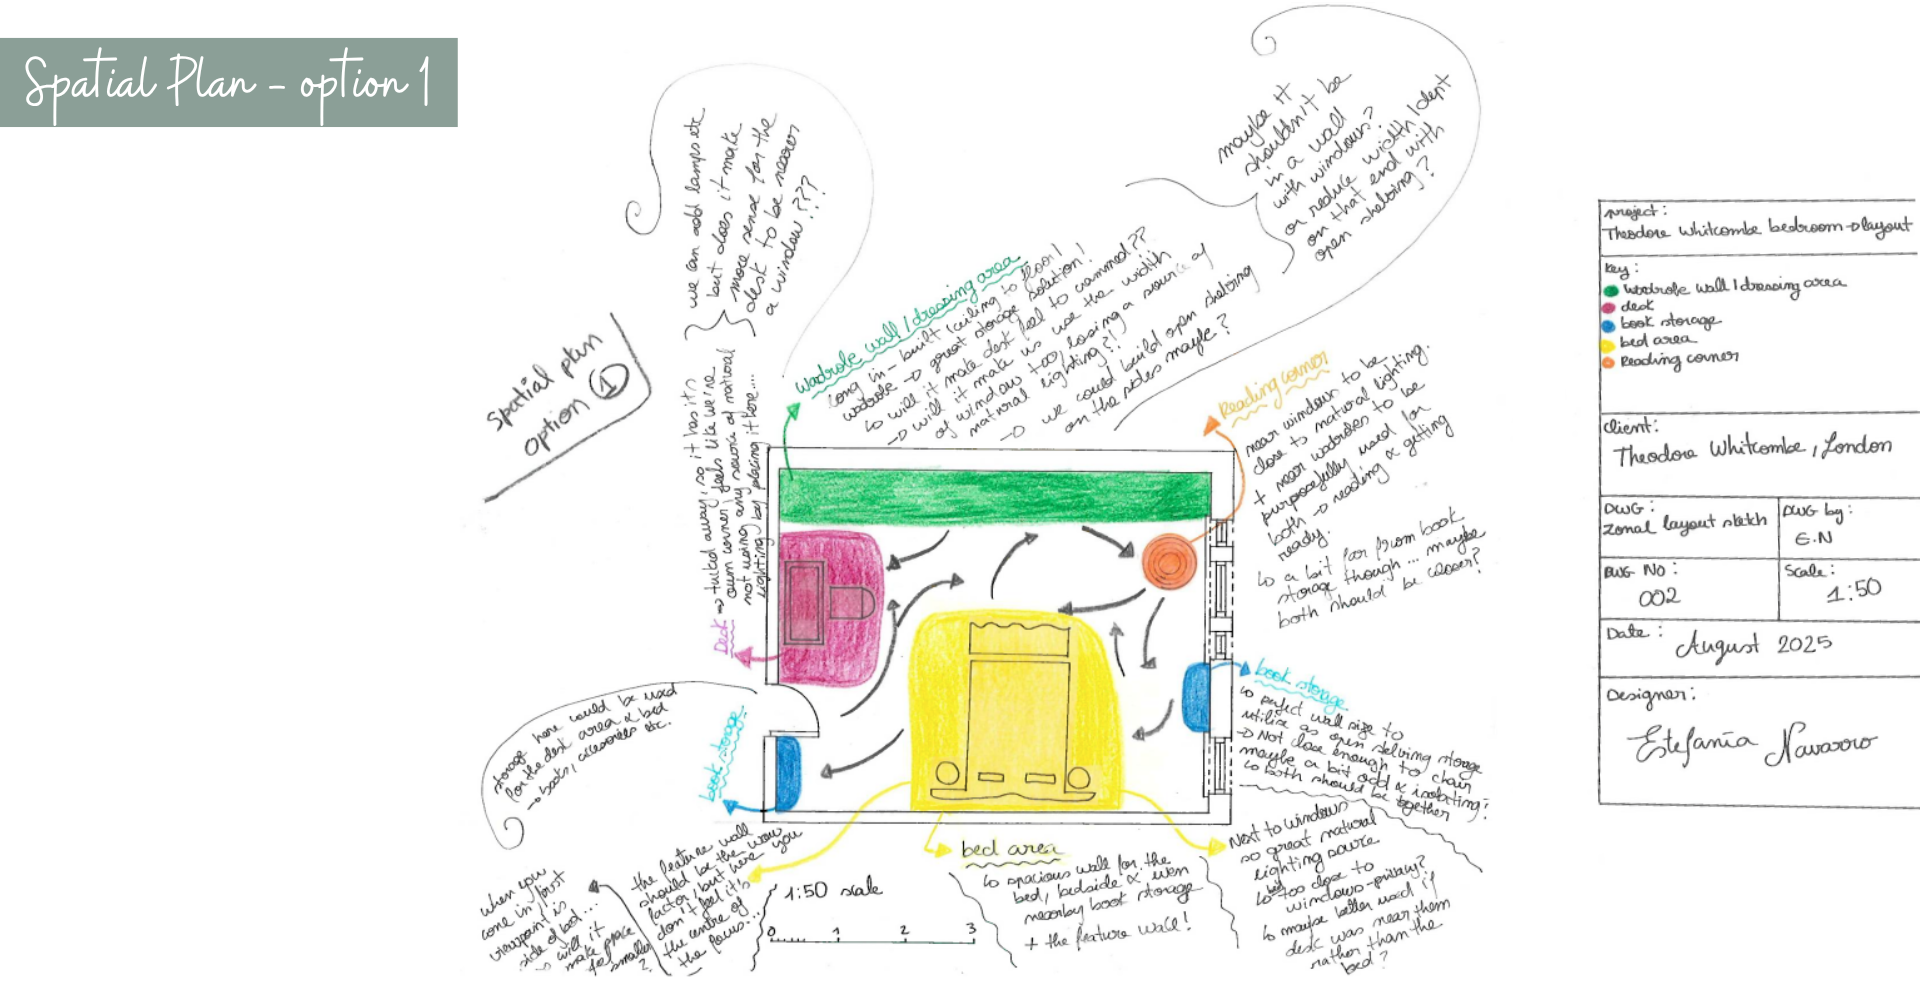 Spatial Plan - option 1
spatial plan
option 1
we can add lamps etc
but does it make
more sense for the
desk to be nearer
a window???
maybe it
shouldn't be
in a wall
with windows?
or reduce width/dept
on that end with
open shelving?
wardrobe wall / dressing area
long in-built (ceiling to floor)
wardrobe → great storage solution!
↳ will it make desk feel to crammed??
→ will it make us use the width
of window too, losing a source of
natural lighting?!
→ we could build open shelving
on the sides maybe?
Reading corner
near window to be
close to natural lighting.
+ near wadrobes to be
purposefully used for
both → reading & getting
ready.
↳ a bit far from book
storage though... maybe
both should be closer?
Desk → tucked away, so it has it's
own corner, feels like we're
not using any source of natural
lighting by placing it here....
storage here could be used
for the desk area & bed
→ books, accesories etc.
book storage
book storage
↳ perfect wall size to
utilise as open shelving storage
→ Not close enough to chair
maybe a bit odd & isolating?
↳ both should be together
when you
come in, first
viewpoint is
side of bed...
↳ will it
make place
feel smaller
?
the feature wall
should be the wow
factor, but here you
don't feel it's
the centre of
the focus...
bed area
↳ spacious wall for the
bed, bedside & even
nearby book storage
+ the feature wall!
Next to windows
so great natural
lighting source
↳ bit too close to
windows-privacy?
↳ maybe better used if
desk was near them
rather than the
bed?
1:50 scale
0 1 2 3
project:
Theodore Whitcombe bedroom→layout
key:
wardrobe wall / dressing area
desk
book storage
bed area
Reading corner
client:
Theodore Whitcombe, London
DWG:
zonal layout sketch
DWG by:
E.N
DWG NO:
002
Scale:
1:50
Date:
August 2025
Designer:
Estefanía Navarro